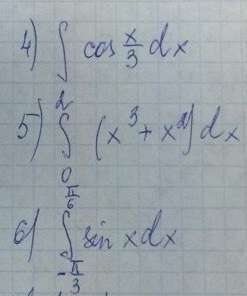 4) ∫ cos x/3 dx
5) ∫₀² (x³ + x²) dx
6) ∫_{-π/3}^{π/6} sin x dx